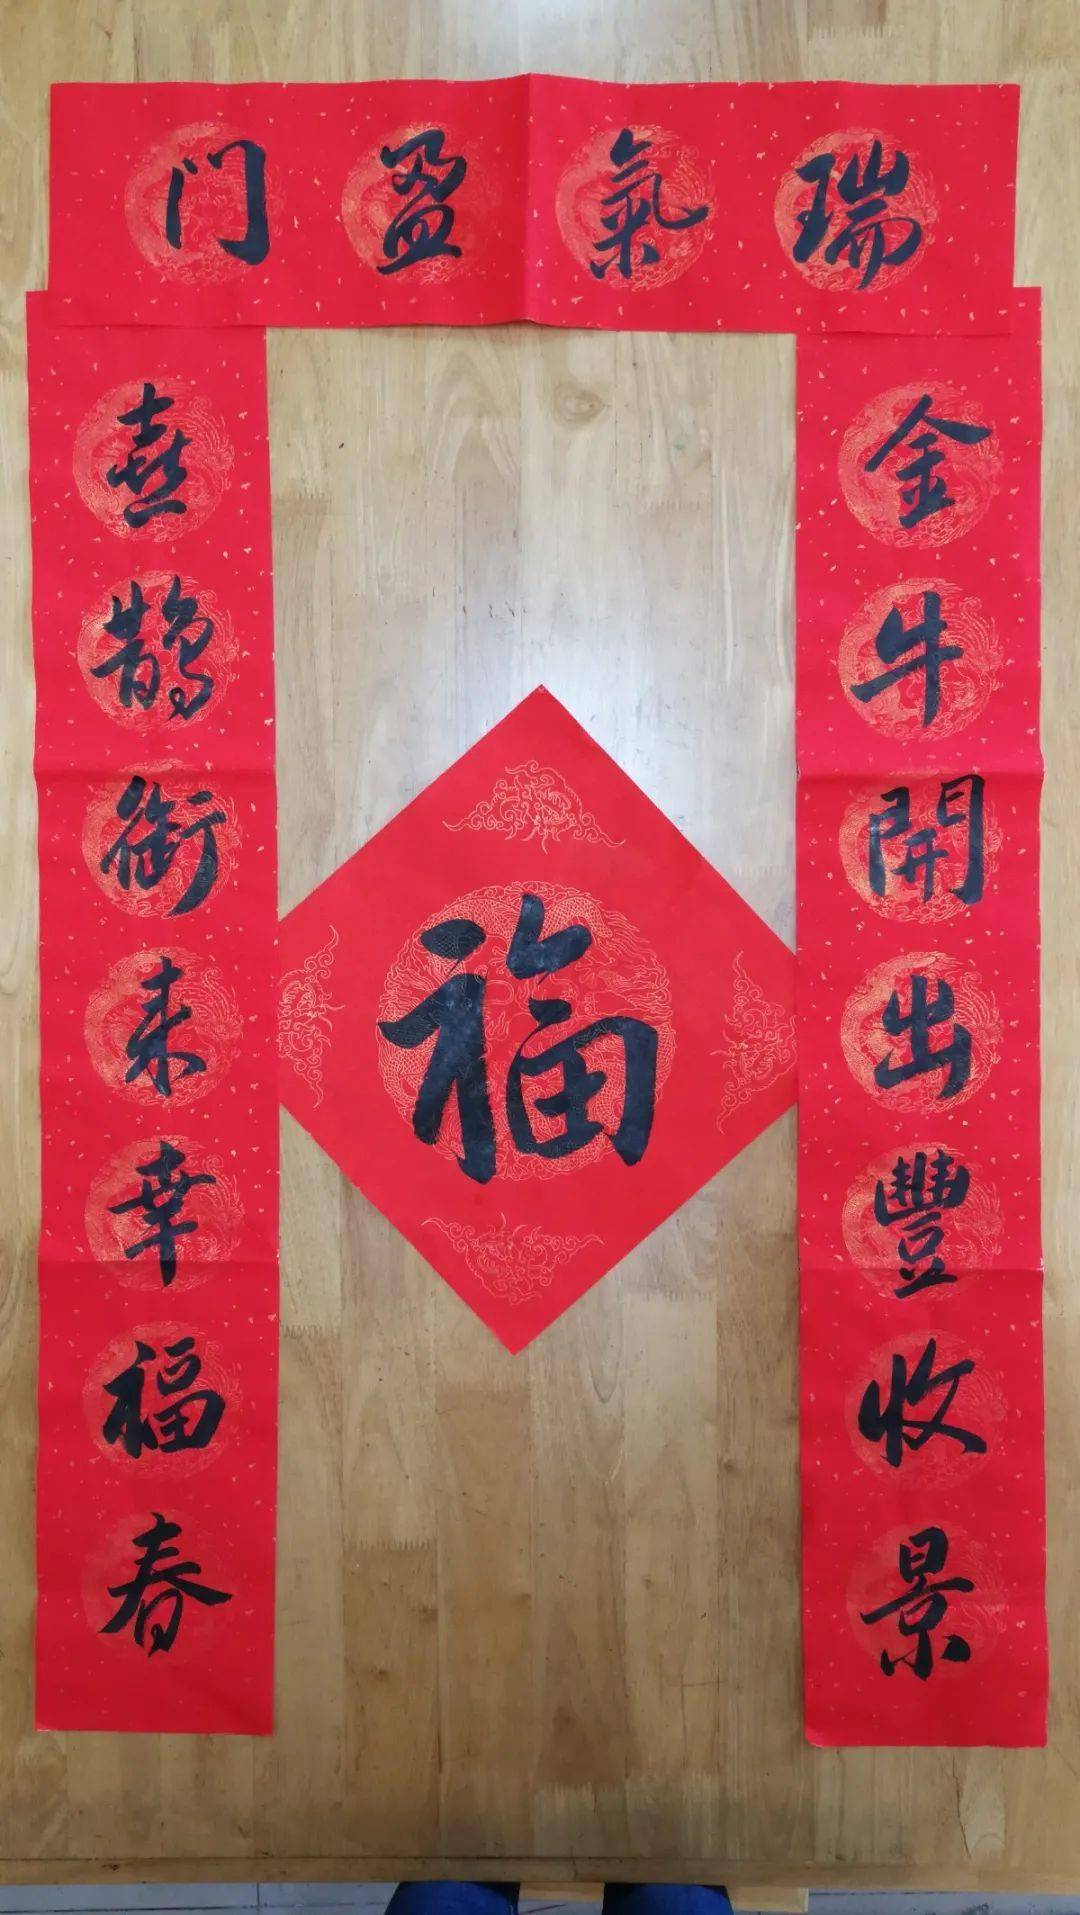 瑞氣盈门
金牛開出豐收景
喜鵲銜来幸福春
福